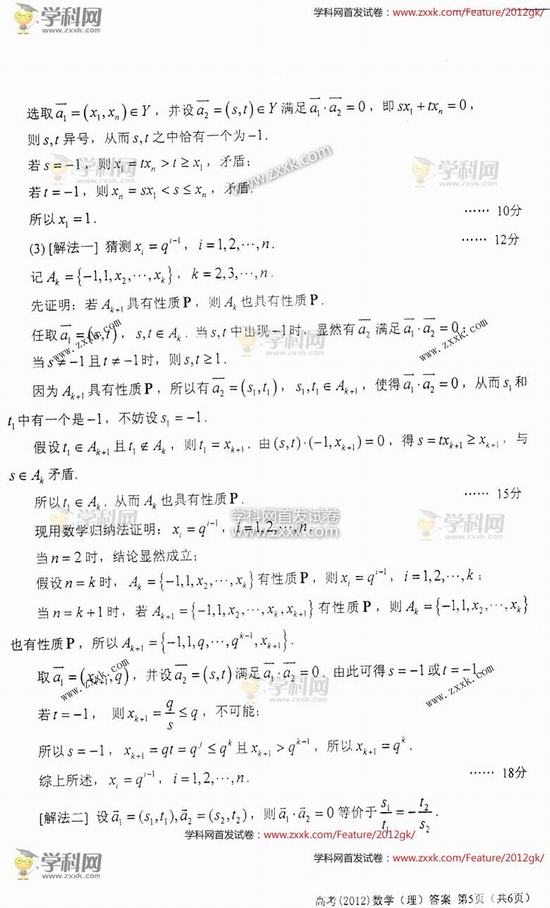 学科网 学科网首发试卷：www.zxxk.com/Feature/2012gk/
选取 a₁ = (x₁, xₙ) ∈ Y ，并设 a₂ = (s, t) ∈ Y 满足 a₁ · a₂ = 0 ，即 sx₁ + txₙ = 0 ，
则 s, t 异号，从而 s, t 之中恰有一个为 −1 .
若 s = −1 ，则 x₁ = txₙ > t ≥ x₁ ，矛盾；
若 t = −1 ，则 xₙ = sx₁ < s ≤ xₙ ，矛盾.
所以 x₁ = 1 . …… 10分
(3) [解法一] 猜测 xᵢ = qⁱ⁻¹ ，i = 1, 2, ⋯, n . …… 12分
记 Aₖ = {−1, 1, x₂, ⋯, xₖ} ，k = 2, 3, ⋯, n .
先证明：若 Aₖ₊₁ 具有性质 P ，则 Aₖ 也具有性质 P .
任取 a₁ = (s, t) ，s, t ∈ Aₖ . 当 s, t 中出现 −1 时，显然有 a₂ 满足 a₁ · a₂ = 0 ；
当 s ≠ −1 且 t ≠ −1 时，则 s, t ≥ 1 .
因为 Aₖ₊₁ 具有性质 P ，所以有 a₂ = (s₁, t₁) ，s₁, t₁ ∈ Aₖ₊₁ ，使得 a₁ · a₂ = 0 ，从而 s₁ 和
t₁ 中有一个是 −1 ，不妨设 s₁ = −1 .
假设 t₁ ∈ Aₖ₊₁ 且 t₁ ∉ Aₖ ，则 t₁ = xₖ₊₁ . 由 (s, t) · (−1, xₖ₊₁) = 0 ，得 s = txₖ₊₁ ≥ xₖ₊₁ ，与
s ∈ Aₖ 矛盾.
所以 t₁ ∈ Aₖ . 从而 Aₖ 也具有性质 P . …… 15分
学科网首发试卷
www.zxxk.com/Feature/2012gk/
现用数学归纳法证明：xᵢ = qⁱ⁻¹ ，i = 1, 2, ⋯, n .
当 n = 2 时，结论显然成立；
假设 n = k 时，Aₖ = {−1, 1, x₂, ⋯, xₖ} 有性质 P ，则 xᵢ = qⁱ⁻¹ ，i = 1, 2, ⋯, k ；
当 n = k + 1 时，若 Aₖ₊₁ = {−1, 1, x₂, ⋯, xₖ, xₖ₊₁} 有性质 P ，则 Aₖ = {−1, 1, x₂, ⋯, xₖ}
也有性质 P ，所以 Aₖ₊₁ = {−1, 1, q, ⋯, qᵏ⁻¹, xₖ₊₁} .
取 a₁ = (xₖ₊₁, q) ，并设 a₂ = (s, t) 满足 a₁ · a₂ = 0 . 由此可得 s = −1 或 t = −1 .
若 t = −1 ，则 xₖ₊₁ = q/s ≤ q ，不可能；
所以 s = −1 ，xₖ₊₁ = qt = qʲ ≤ qᵏ 且 xₖ₊₁ > qᵏ⁻¹ ，所以 xₖ₊₁ = qᵏ .
综上所述，xᵢ = qⁱ⁻¹ ，i = 1, 2, ⋯, n . …… 18分
[解法二] 设 a₁ = (s₁, t₁), a₂ = (s₂, t₂) ，则 a₁ · a₂ = 0 等价于 s₁/t₁ = −t₂/s₂ .
学科网首发试卷：www.zxxk.com/Feature/2012gk/
学科网 学科网首发试卷：www.zxxk.com/Feature/2012gk/
高考(2012)数学（理）答案 第5页（共6页）